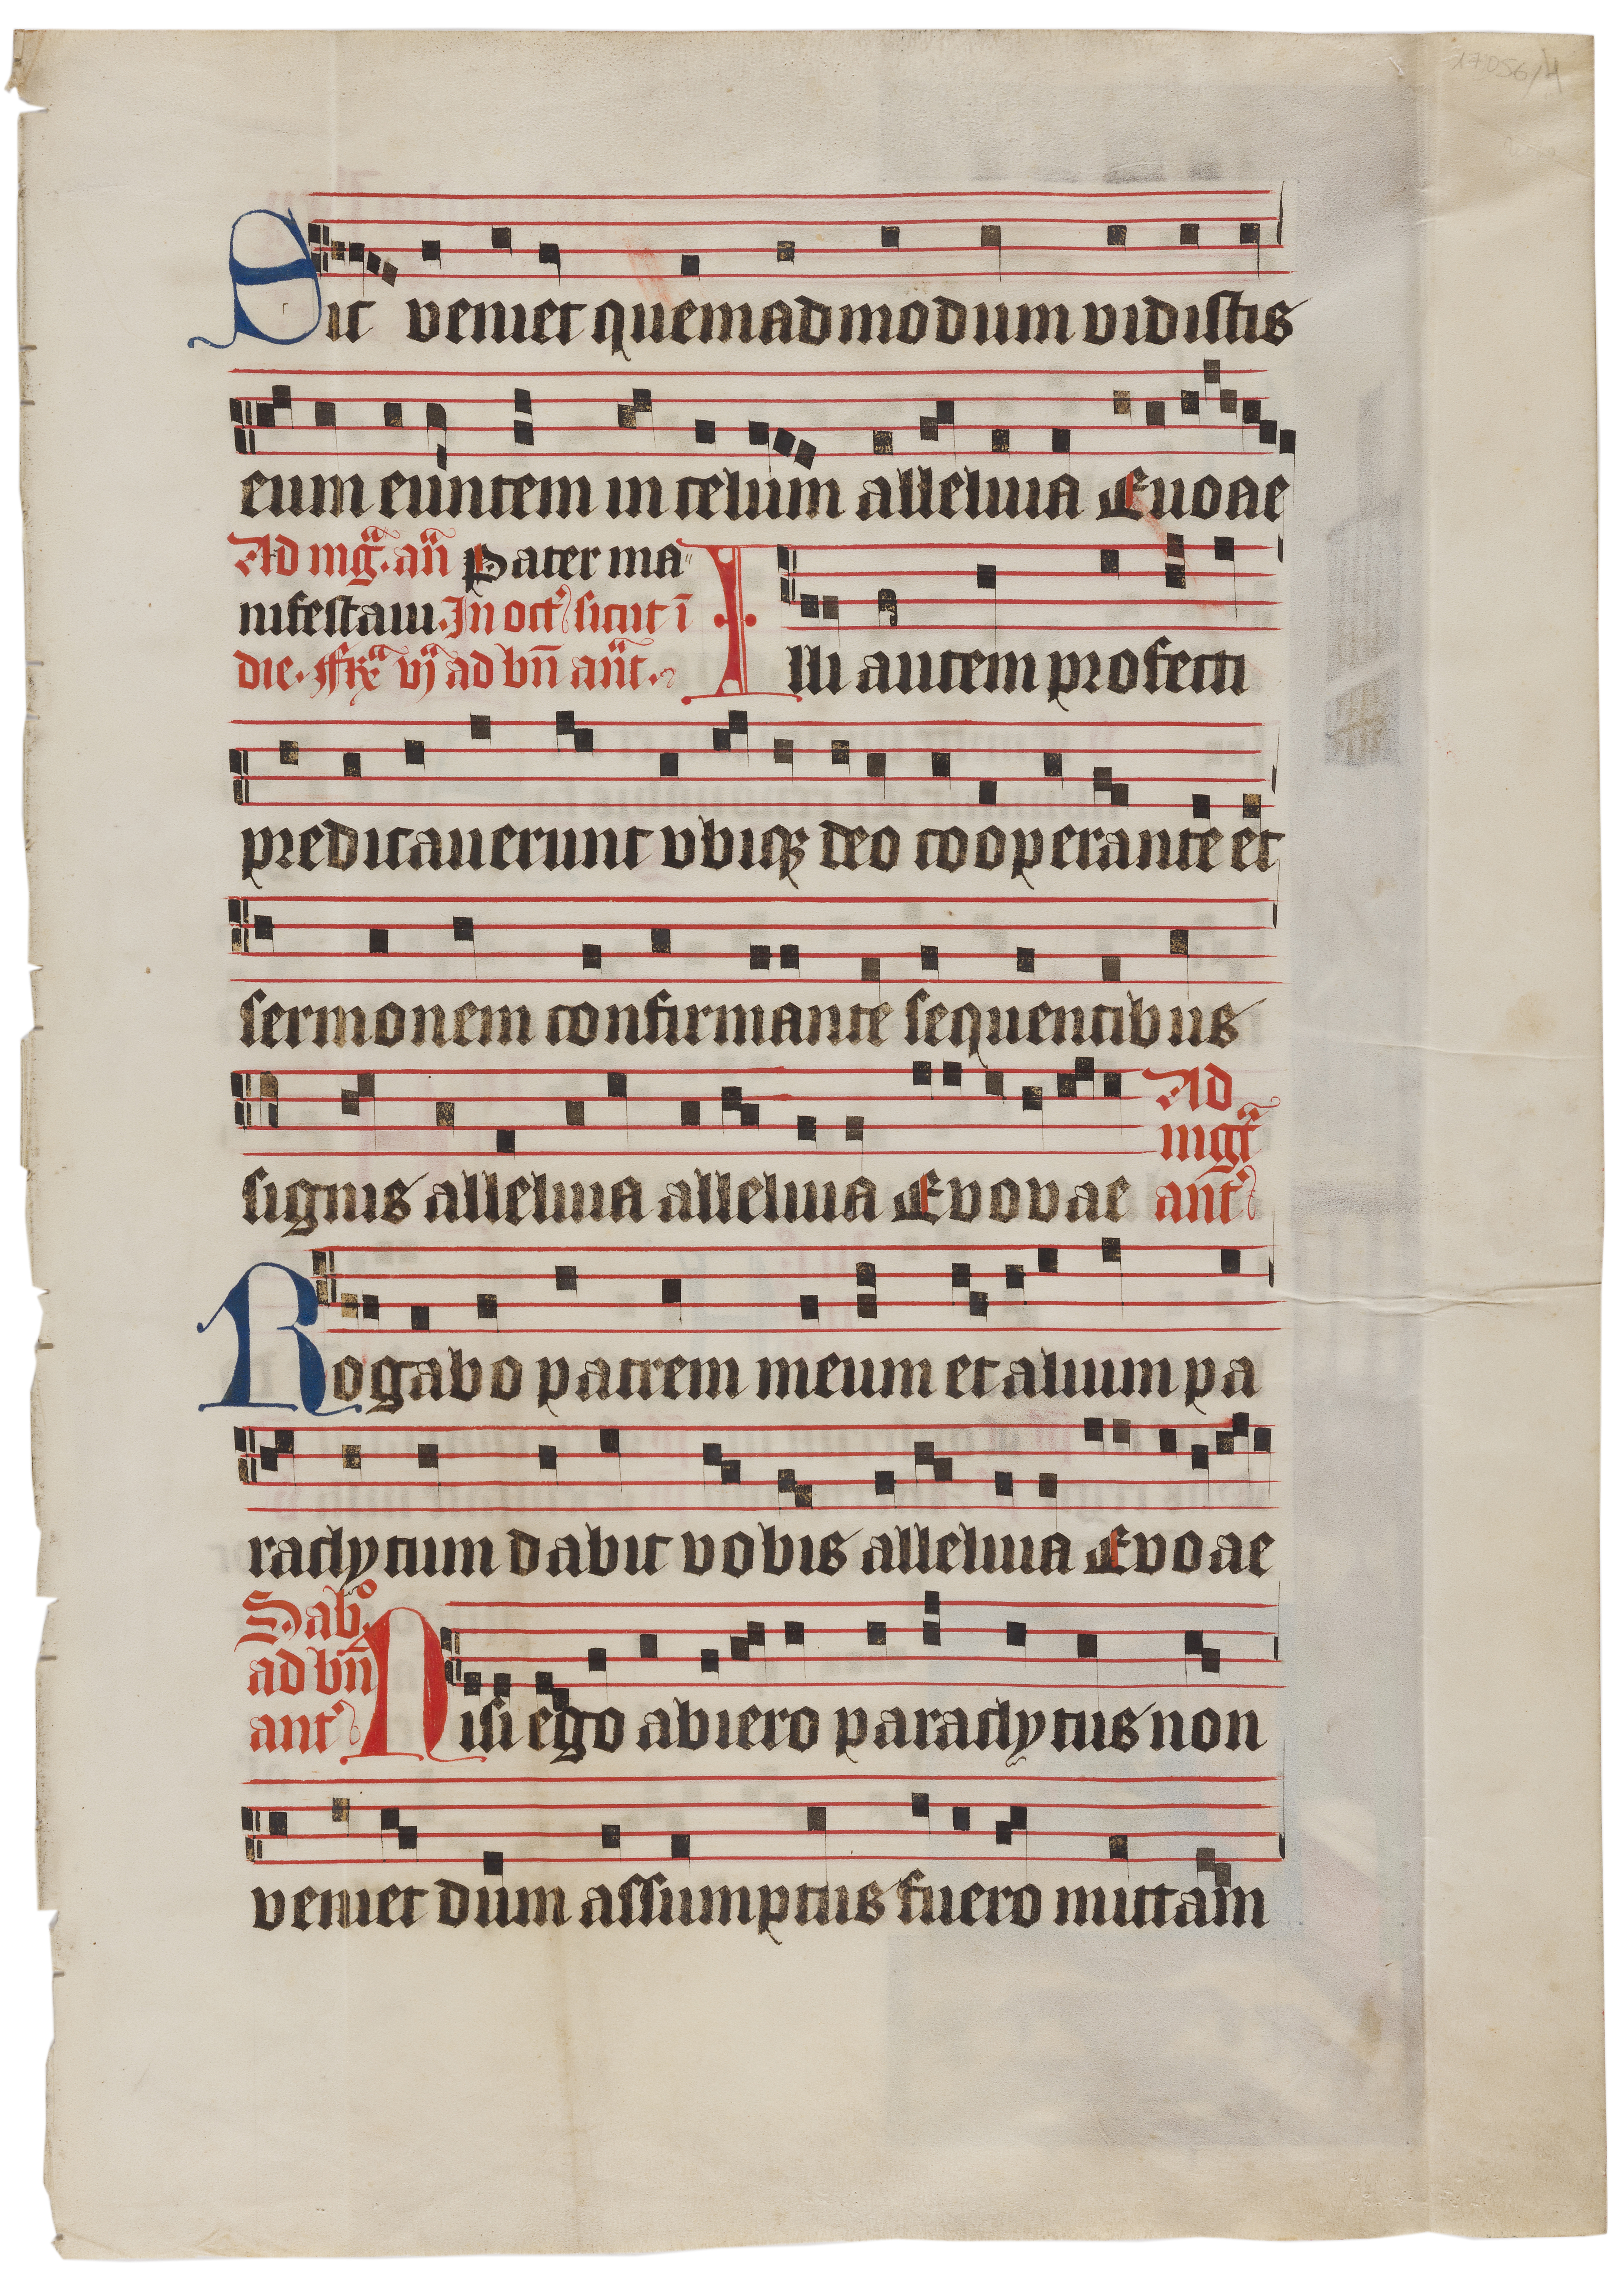 17056/4
Sic veniet quemadmodum vidistis
eum euntem in celum alleluia Euoae
Ad mg̃a. añ Pater ma
nifestaui. In oct' sicut ĩ
die. ffrã vj ad bñ añt.
Illi autem profecti
predicauerunt vbiqꝫ deo cooperante et
sermonem confirmante sequentibus
signis alleluia alleluia Evovae
Ad
mgt̃
ant'
Rogabo patrem meum et alium pa
raclytum dabit vobis alleluia Evoae
Sabo.
ad bñ
ant'
Nisi ego abiero paraclytus non
veniet dum assumptus fuero mittam